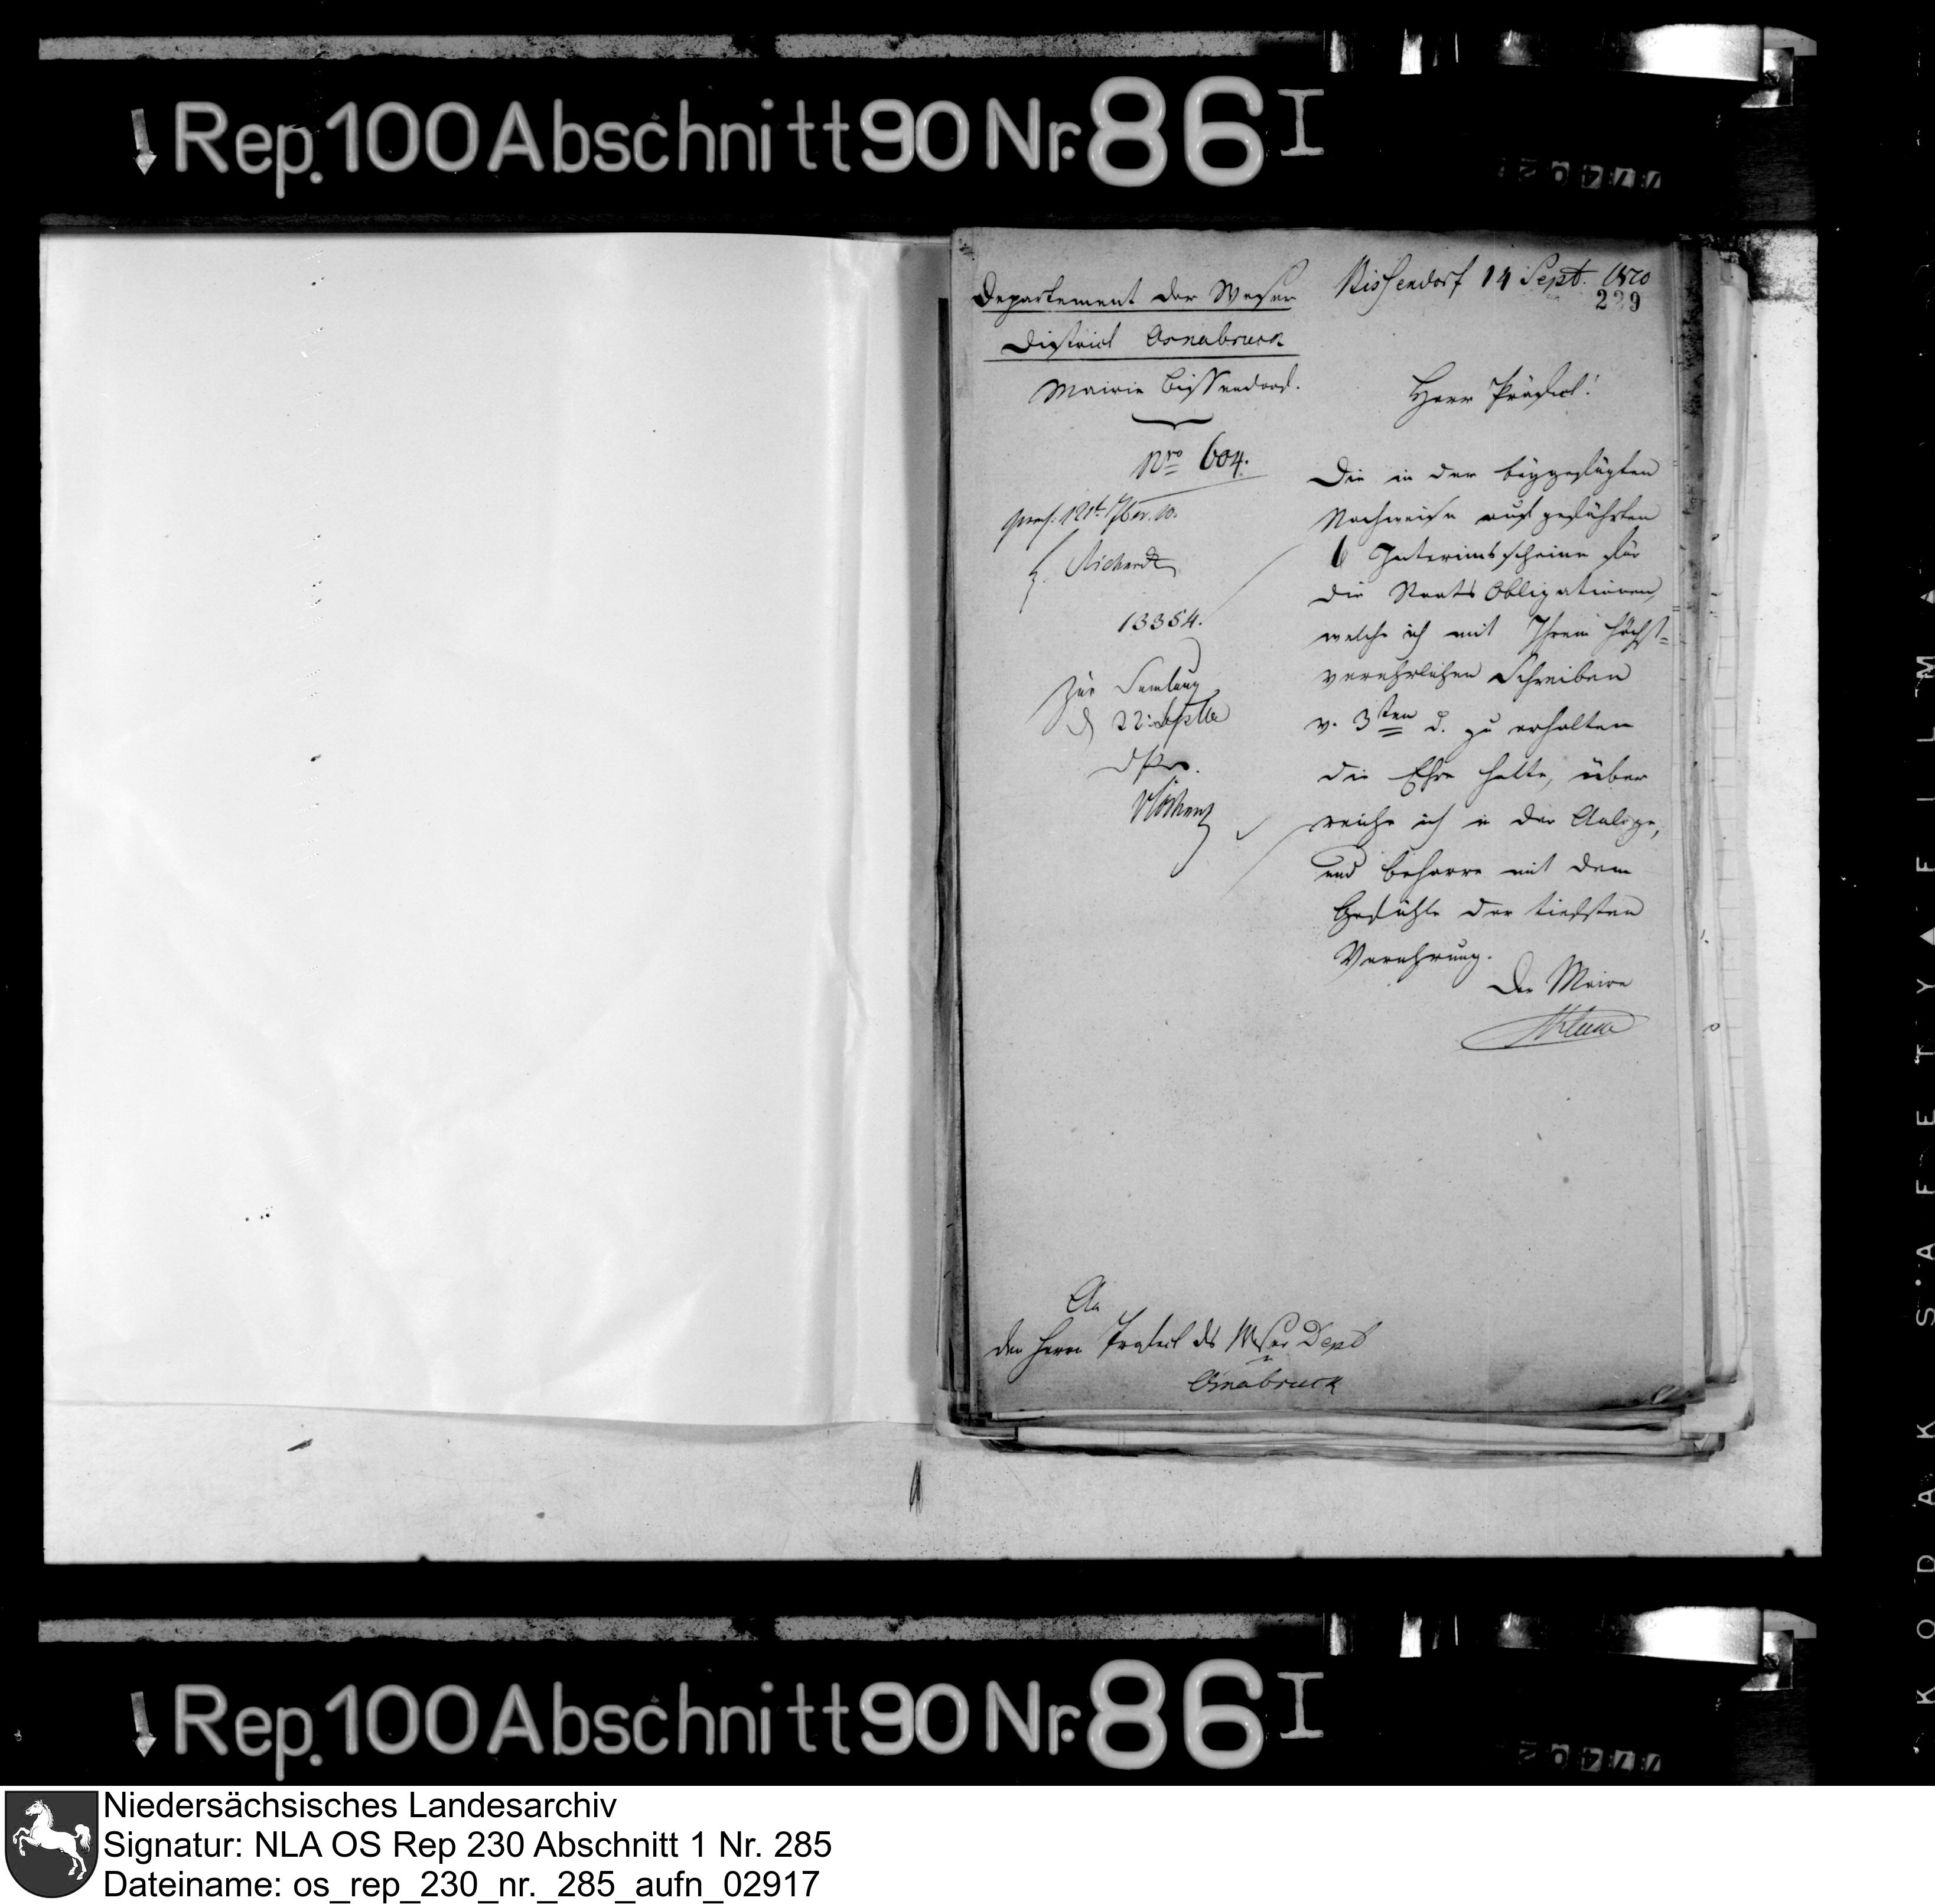 Rep. 100 Abschnitt 90 Nr. 86 I
Departement der Weser
District Osnabruck
Mairie Bissendorf.
Nro 604.
praes. 21t 7ber. 10.
Richard
13354.
Zur Samlung
d 22 Septbr
Bissendorf 14 Sept. 1810
229
Herr Präfect!
Die in der beygefügten
Nachweise aufgeführten
6 Interimsscheine für
die Staats Obligationen,
welche ich mit Ihrem höchst-
verehrlichen Schreiben
v. 3ten d. zu erhalten
die Ehre hatte, über
reiche ich in der Anlage,
und beharre mit dem
Gefühle der tiefsten
Verehrung.
Der Maire
An
den Herrn Präfect des Weser Dept
Osnabruck
KODAK SAFETY FILM
Rep. 100 Abschnitt 90 Nr. 86 I
Niedersächsisches Landesarchiv
Signatur: NLA OS Rep 230 Abschnitt 1 Nr. 285
Dateiname: os_rep_230_nr._285_aufn_02917